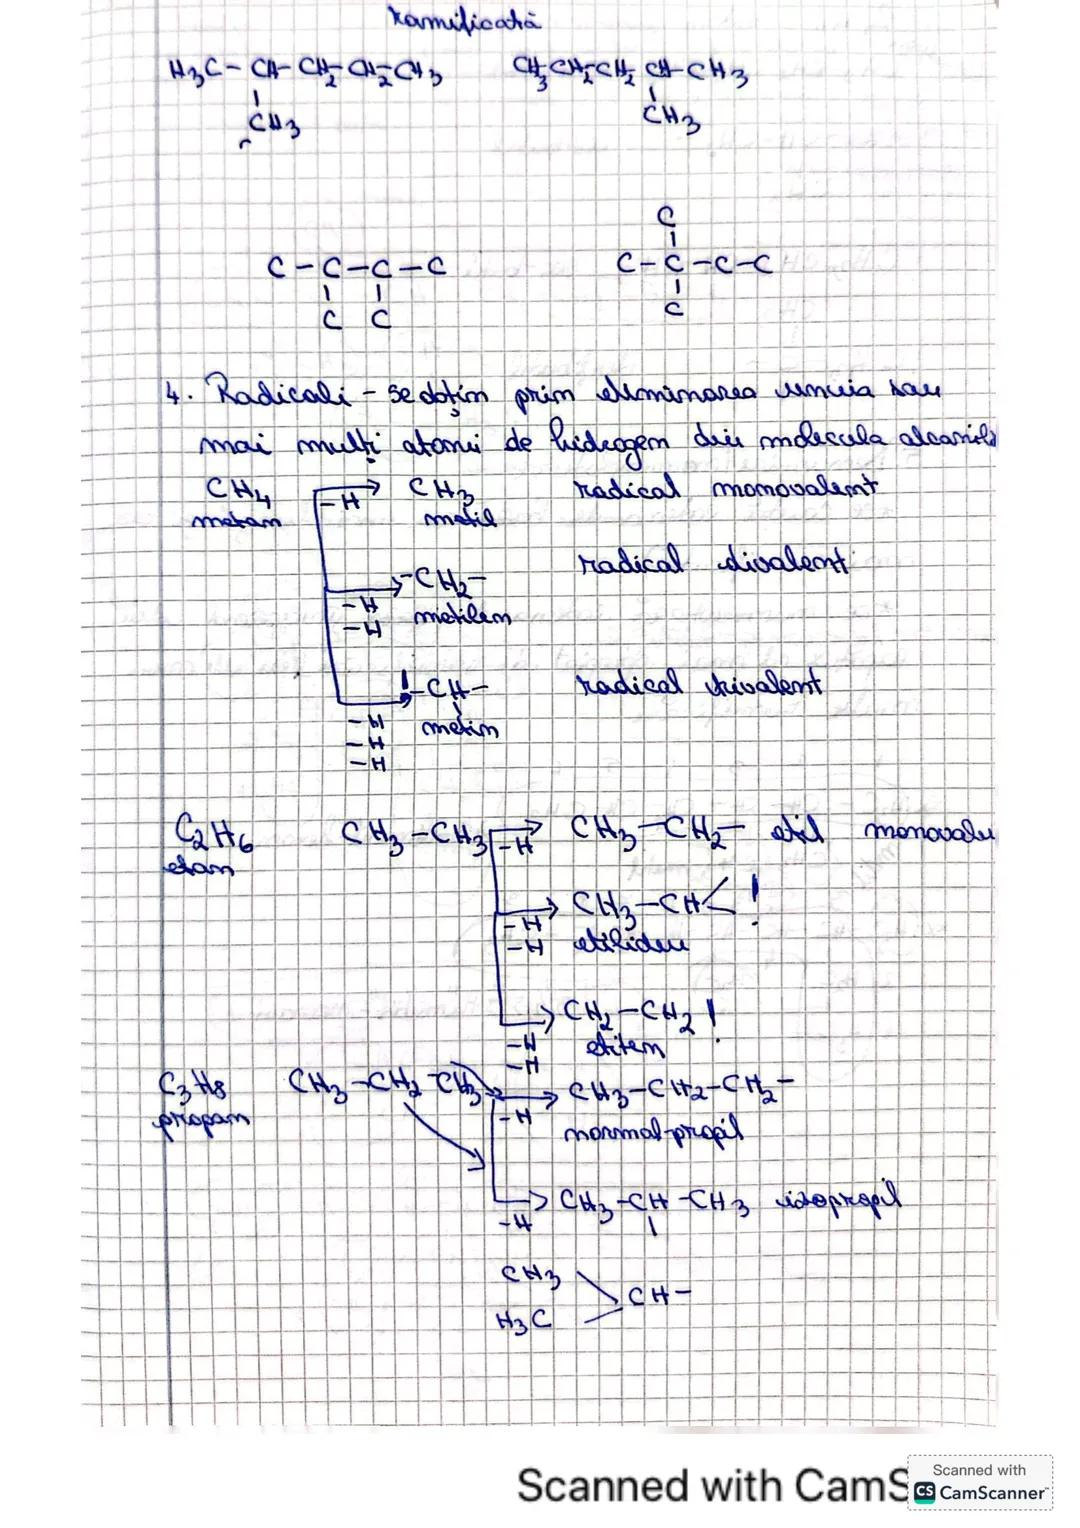 ramificată
H₃C-CH-CH₂-CH₂-CH₃ CH₃-CH₂-CH₂-CH-CH₃
CH₃ CH₃
C
C-C-C-C C-C-C-C
C C C
4. Radicali - se obțin prin eliminarea unuia sau
mai mulți atomi de hidrogen din molecula alcanilo
CH₄ -H CH₃ radical monovalent
metan metil
-CH₂- radical divalent
-H metilen
-H
! -CH- radical trivalent
-H metin
-H
-H
C₂H₆ CH₃-CH₃ -H CH₃-CH₂- etil monovale
etan
CH₃-CH< !
-H
-H etiliden
CH₂-CH₂ !
-H etilen
-H
C₃H₈ CH₃-CH₂-CH₃ CH₃-CH2-CH₂-
propan -H normal-propil
-H CH₃-CH-CH₃ izopropil
CH₃
CH-
H₃C
Scanned with CamS
Scanned with
CS CamScanner